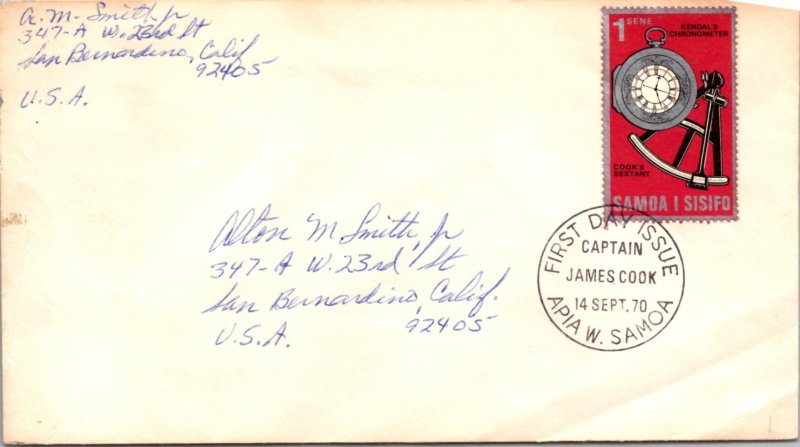 A. M. Smith jr
347-A W. 23rd St
San Bernardino, Calif
92405
U.S.A.
1 SENE
KENDAL'S
CHRONOMETER
COOK'S
SEXTANT
SAMOA I SISIFO
FIRST DAY ISSUE
CAPTAIN
JAMES COOK
14 SEPT. 70
APIA W. SAMOA
Alton M Smith, jr
347-A W. 23rd St
San Bernardino, Calif.
92405
U.S.A.